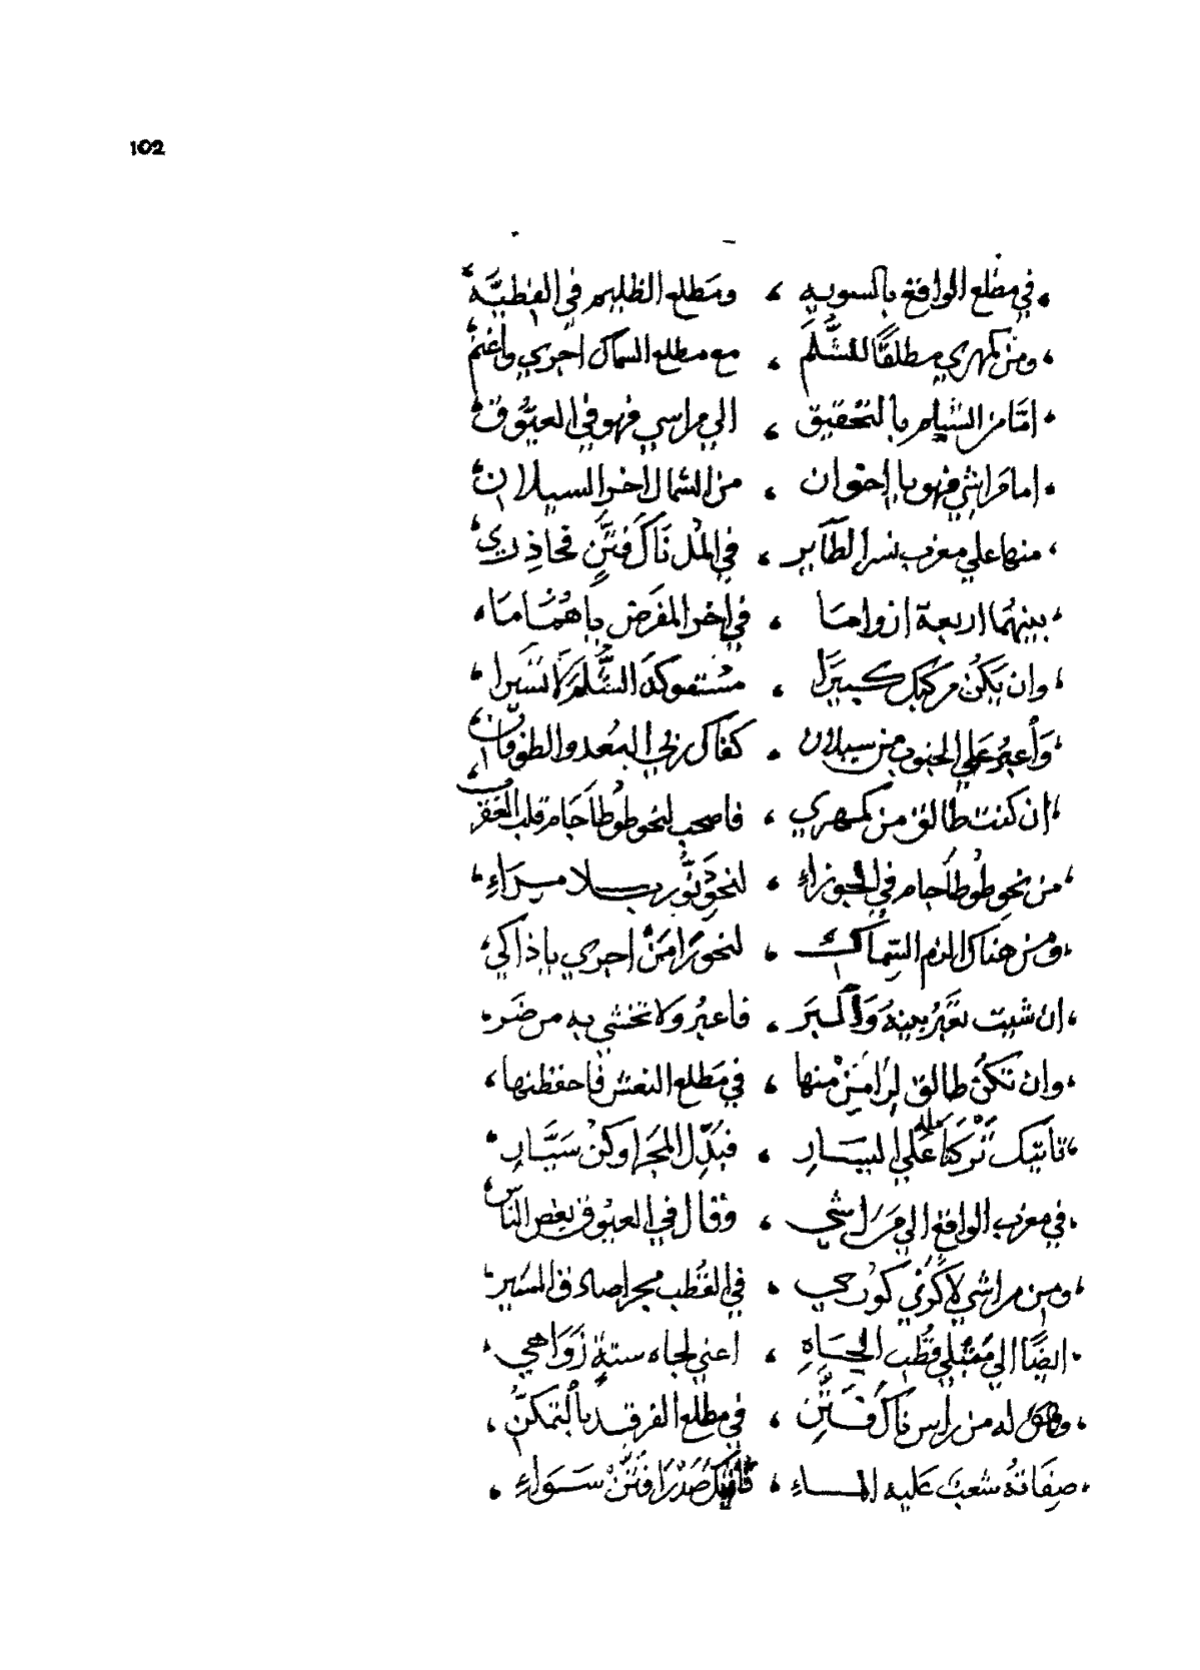 102
في مطلع الواقع بالسويه ، ومطلع الظليم في القطيّة
ومن كمهري مطلقًا للشُّلَم ، مع مطلع السماك اجري واغنم
امّا من الشُّلم بالتحقيق ، الي مراسي فهو في العيُّوق
اما مراشي فهو يا إخوان ، من الشمال اخر السيلان
منها علي مغرب نسر الطاير ، في المل ناك فَتَّنٍ فحاذري
بينهما اربعة ازواما ، في اخر المفرض يا هُمَامَا
وان يَكُن مركبك كبيرَا ، الشُّلَم لا تسرا
وأعبُر علي الجنوب من سيلان ، كفاك ربي البعد والطوفان
ان كنت طالق من كمهري ، فاصحب لنحو طوطاجام قلب العقرب
من نحو طوطاجام في الجوزاءِ ، لنحو دَنُّورٍ بلا ميرَاءِ
ومن هناك الزم السِّماك ، لنحو رامَنْ اجري يا ذاكي
ان شيت تعبُر بينهُ وَالبَر ، فاعبُر ولا تخشي به من ضَرر
وان تكُن طالق لِرَامَن منها ، في مَطلع النعش فاحفظنها
تأتيك تَركنا عَلَي اليسَارِ ، فبَدِّل المجرا وكُن سَيَّارِ
في مغرب الواقع الي مَرَاشي ، وقال في العيُّوق بعض الناس
ومن مراشي لاكَوْني كورحي ، في القُطب مجرا صادق المسير
ايضًا الي قُطب الجَاهِ ، اعني لجاه ستةٍ زَوَاهي
له من راس ناك فَتَّنِ ، في مطلع الفرقد بالتمكُّن
صِفَاتهُ شعب عَليه الماءِ ، صَدْرَا فَتَّنْ سَوَاءِ